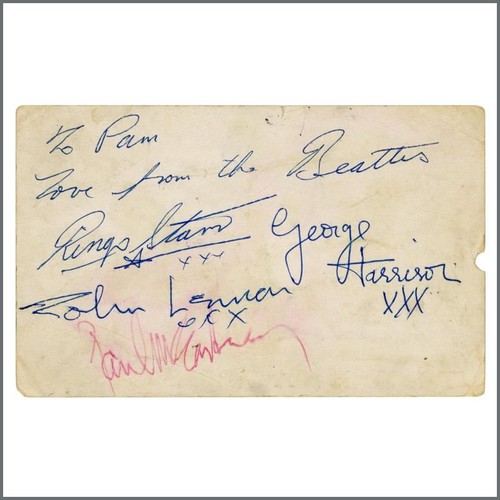 To Pam
Love from the Beatles
Ringo Starr xxx
George Harrison xxx
John Lennon xxx
Paul McCartney